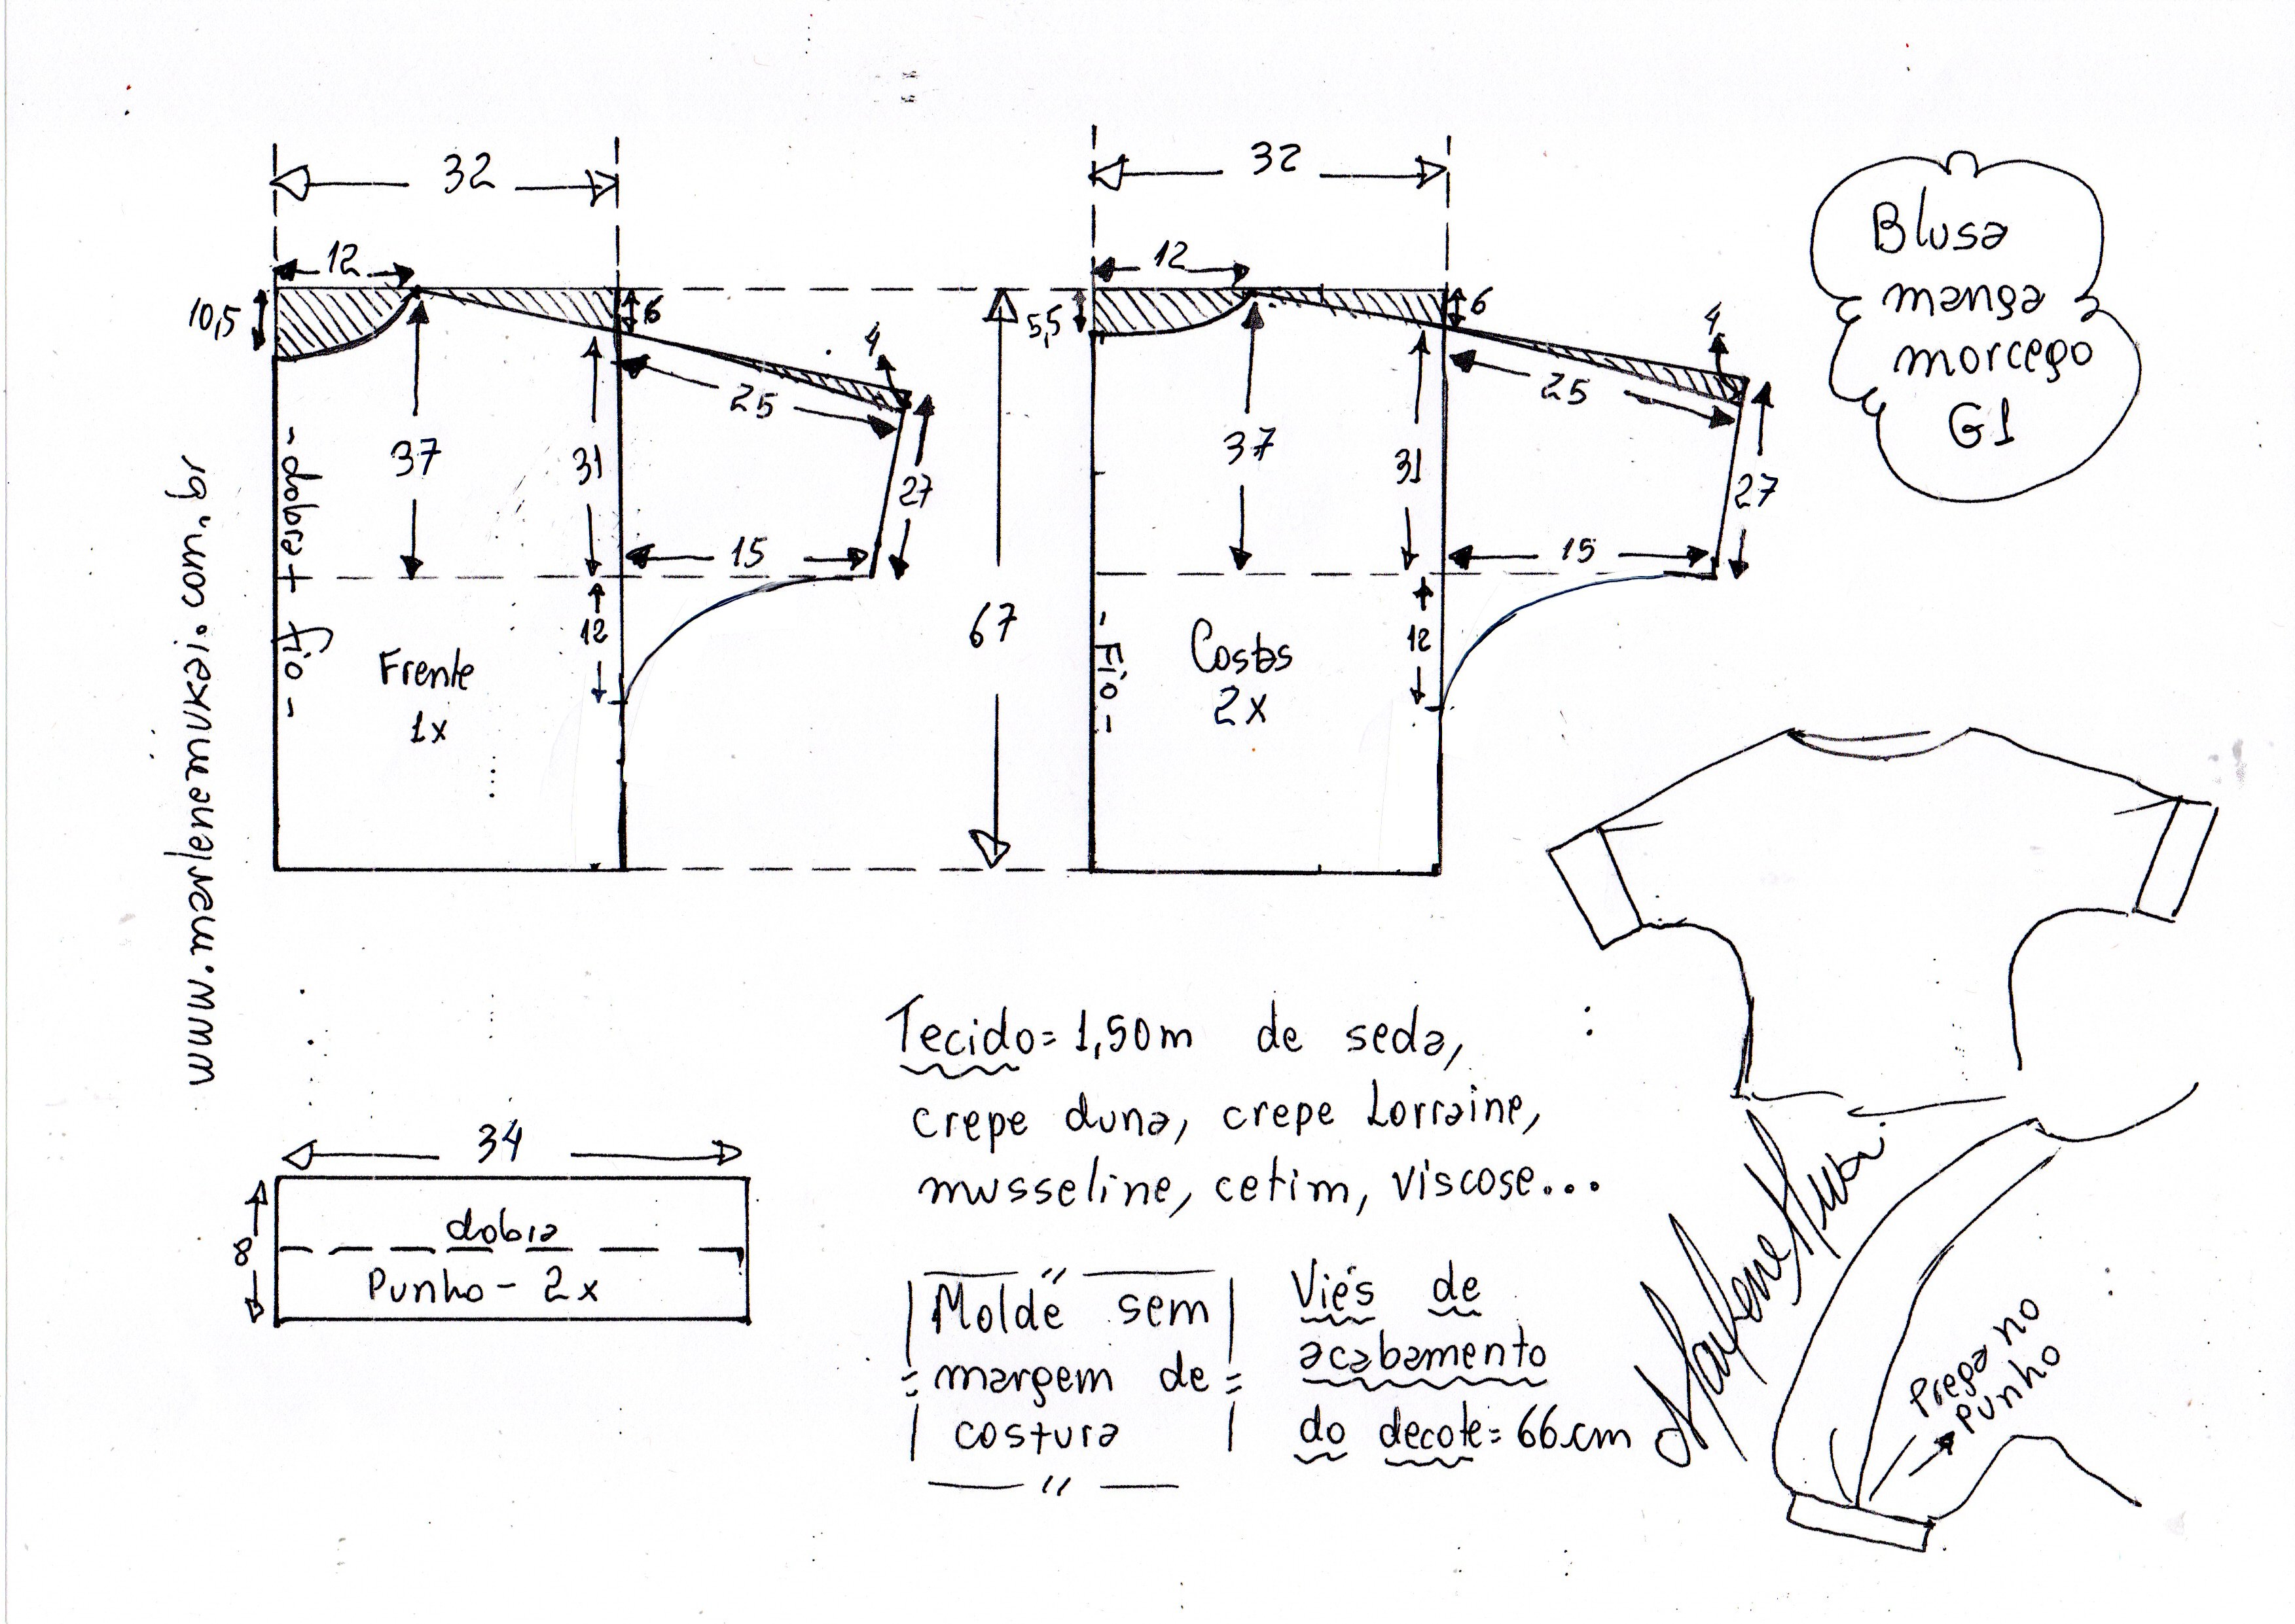 32
32
12
12
10,5
6
5,5
6
4
4
25
25
37
31
27
37
31
27
15
15
12
12
67
- dobra + fio -
- Fio -
Frente
1x
Costas
2x
Blusa
manga
morcego
G1
www.marlenemukai.com.br
34
8
dobra
Punho - 2x
Tecido = 1,50m de seda,
crepe duna, crepe Lorraine,
musseline, cetim, viscose...
Molde sem
margem de
costura
Viés de
acabamento
do decote = 66cm
Marlene Mukai
Prega no
punho